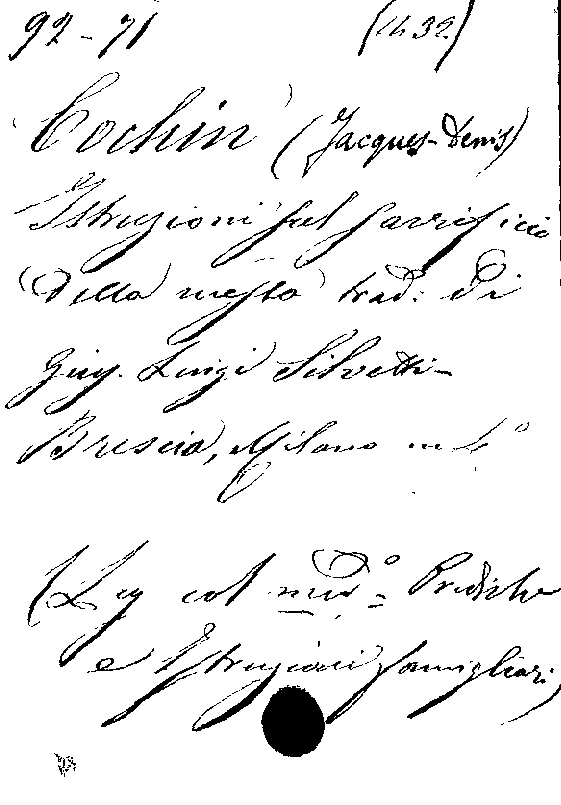 92-71 (1432)
Cochin (Jacques-Denis)
Istruzioni sul sacrificio
della messa trad. di
Gius. Luigi Silvetti-
Brescia, Milano in 4°
(Leg col med° Prediche
e Istruzioni famigliari)